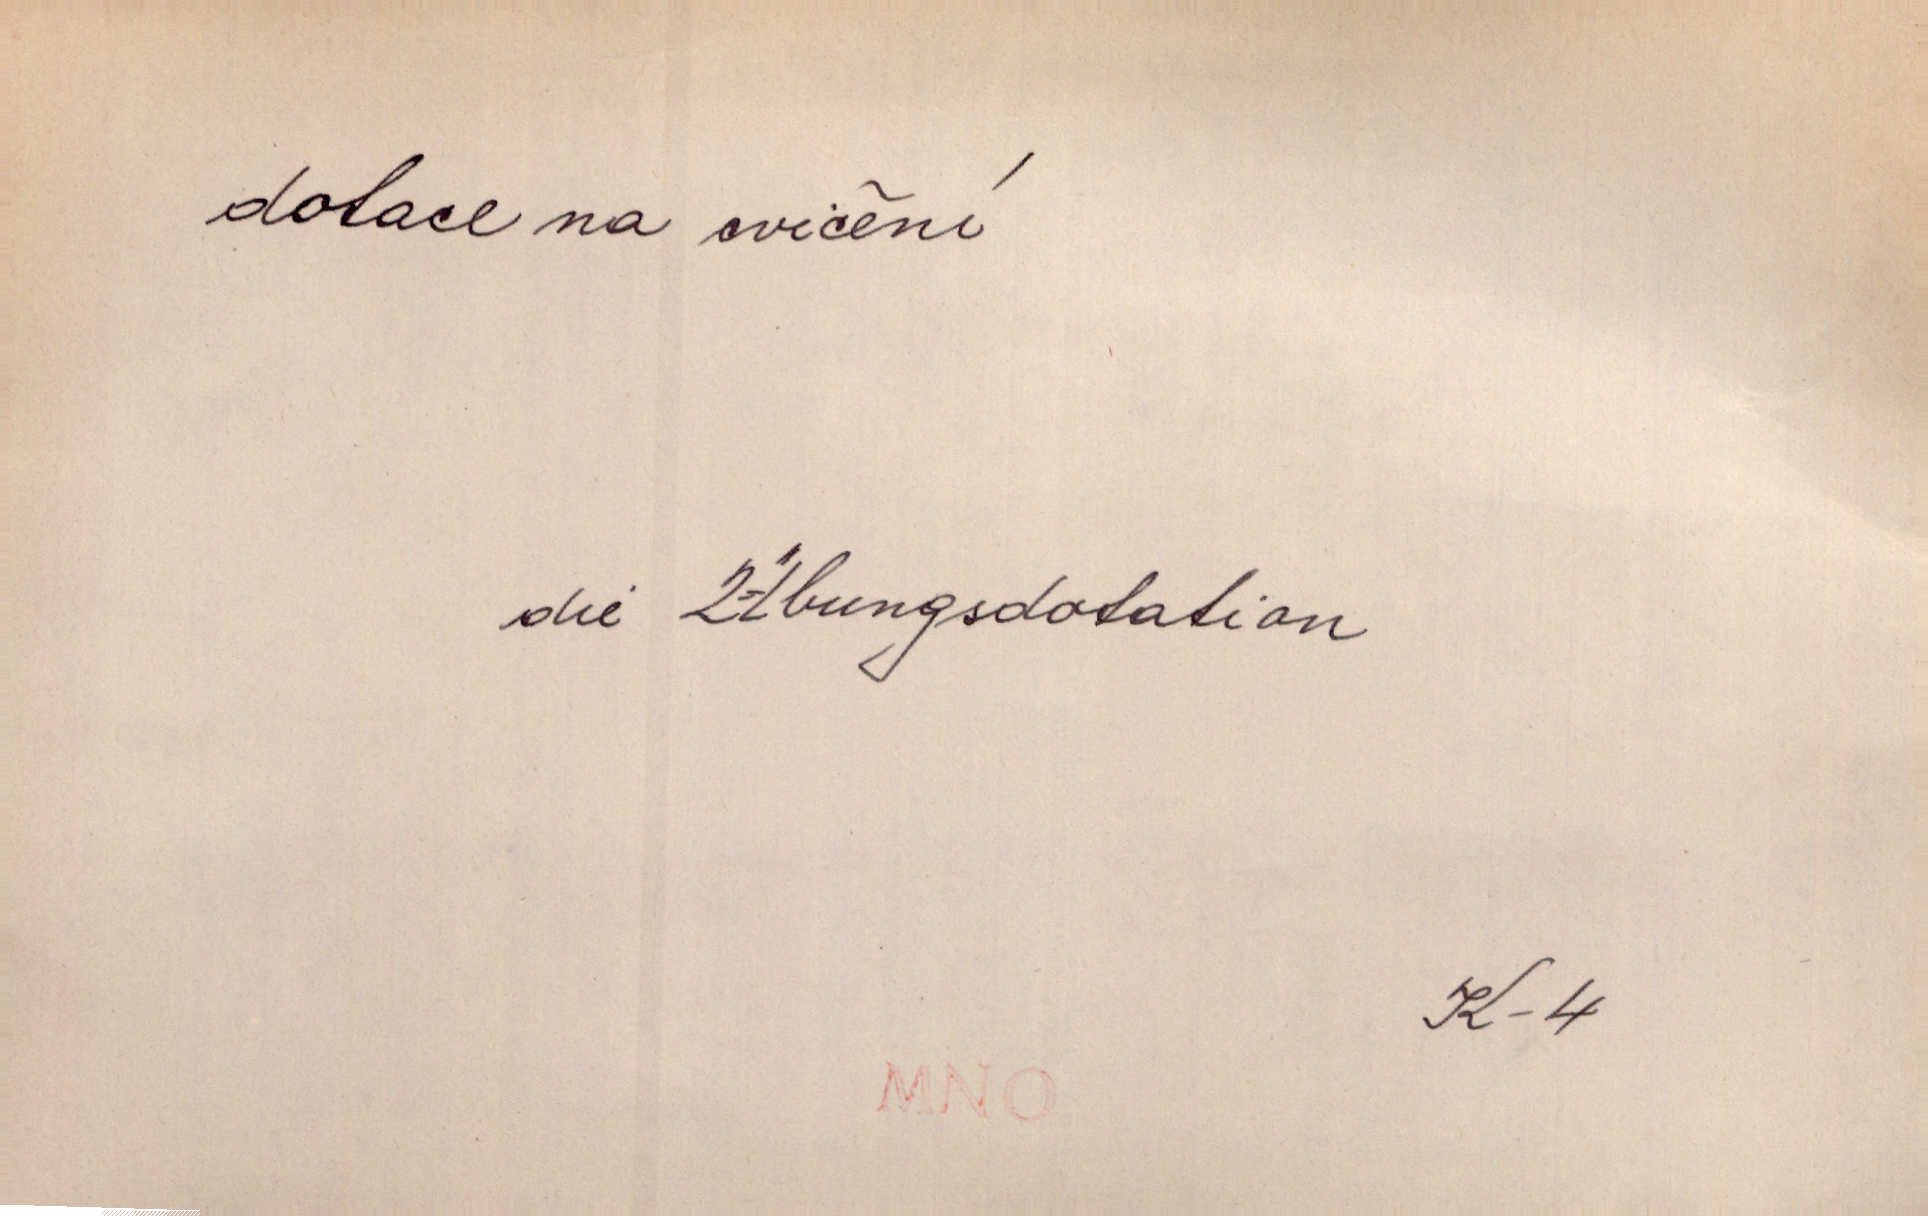 dotace na cvičení
die Übungsdotation
K-4
MNO